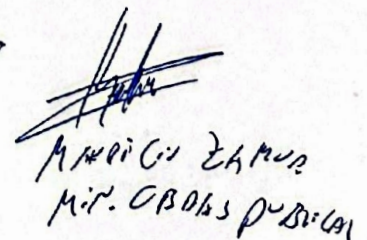 MAURICIO ZAMORA
MIN. OBRAS PUBLICAS